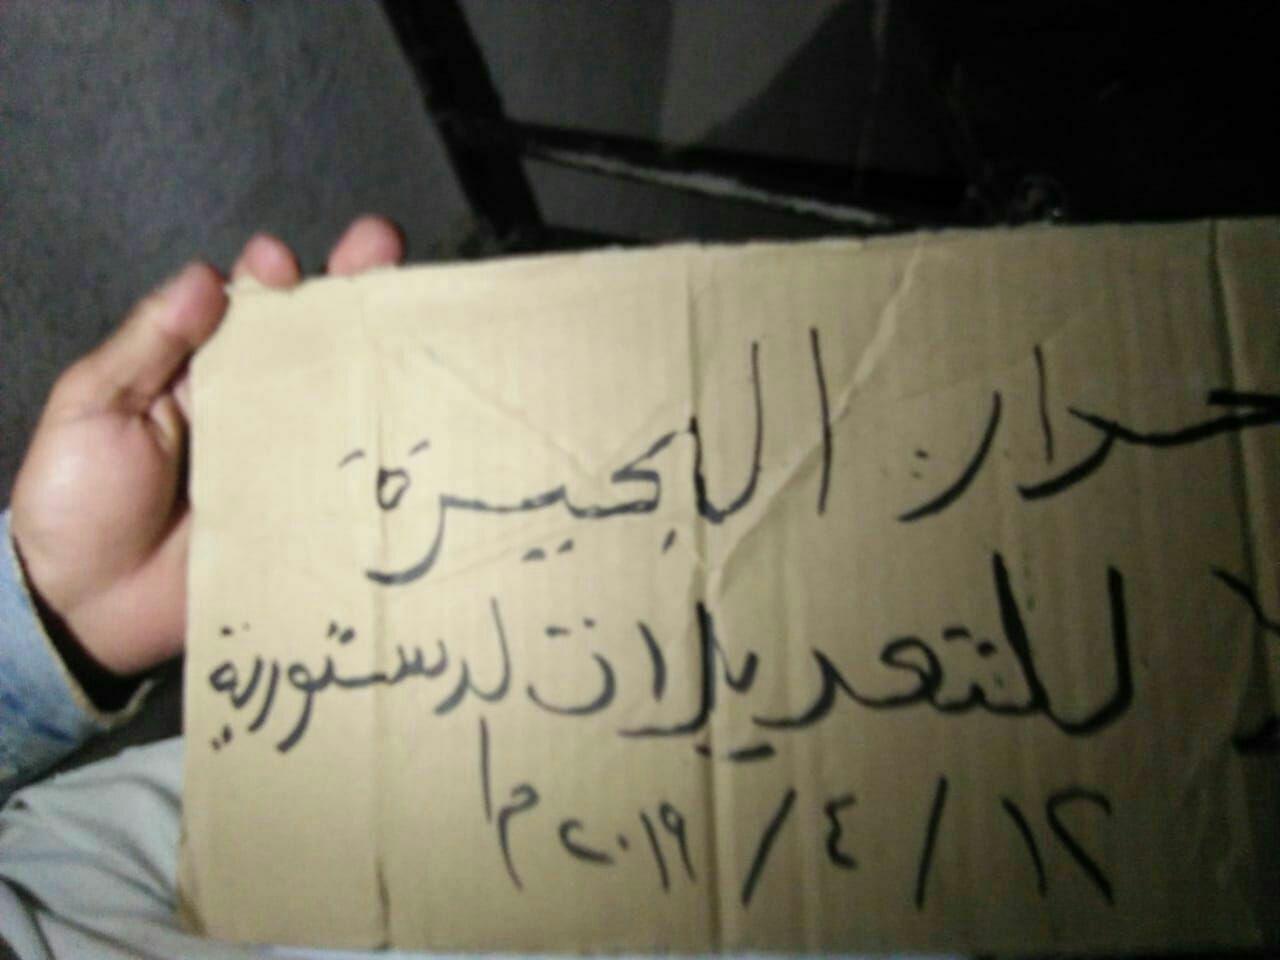 حرار البحيرة
لا للتعديلات الدستورية
١٢ / ٤ / ٢٠١٩ م